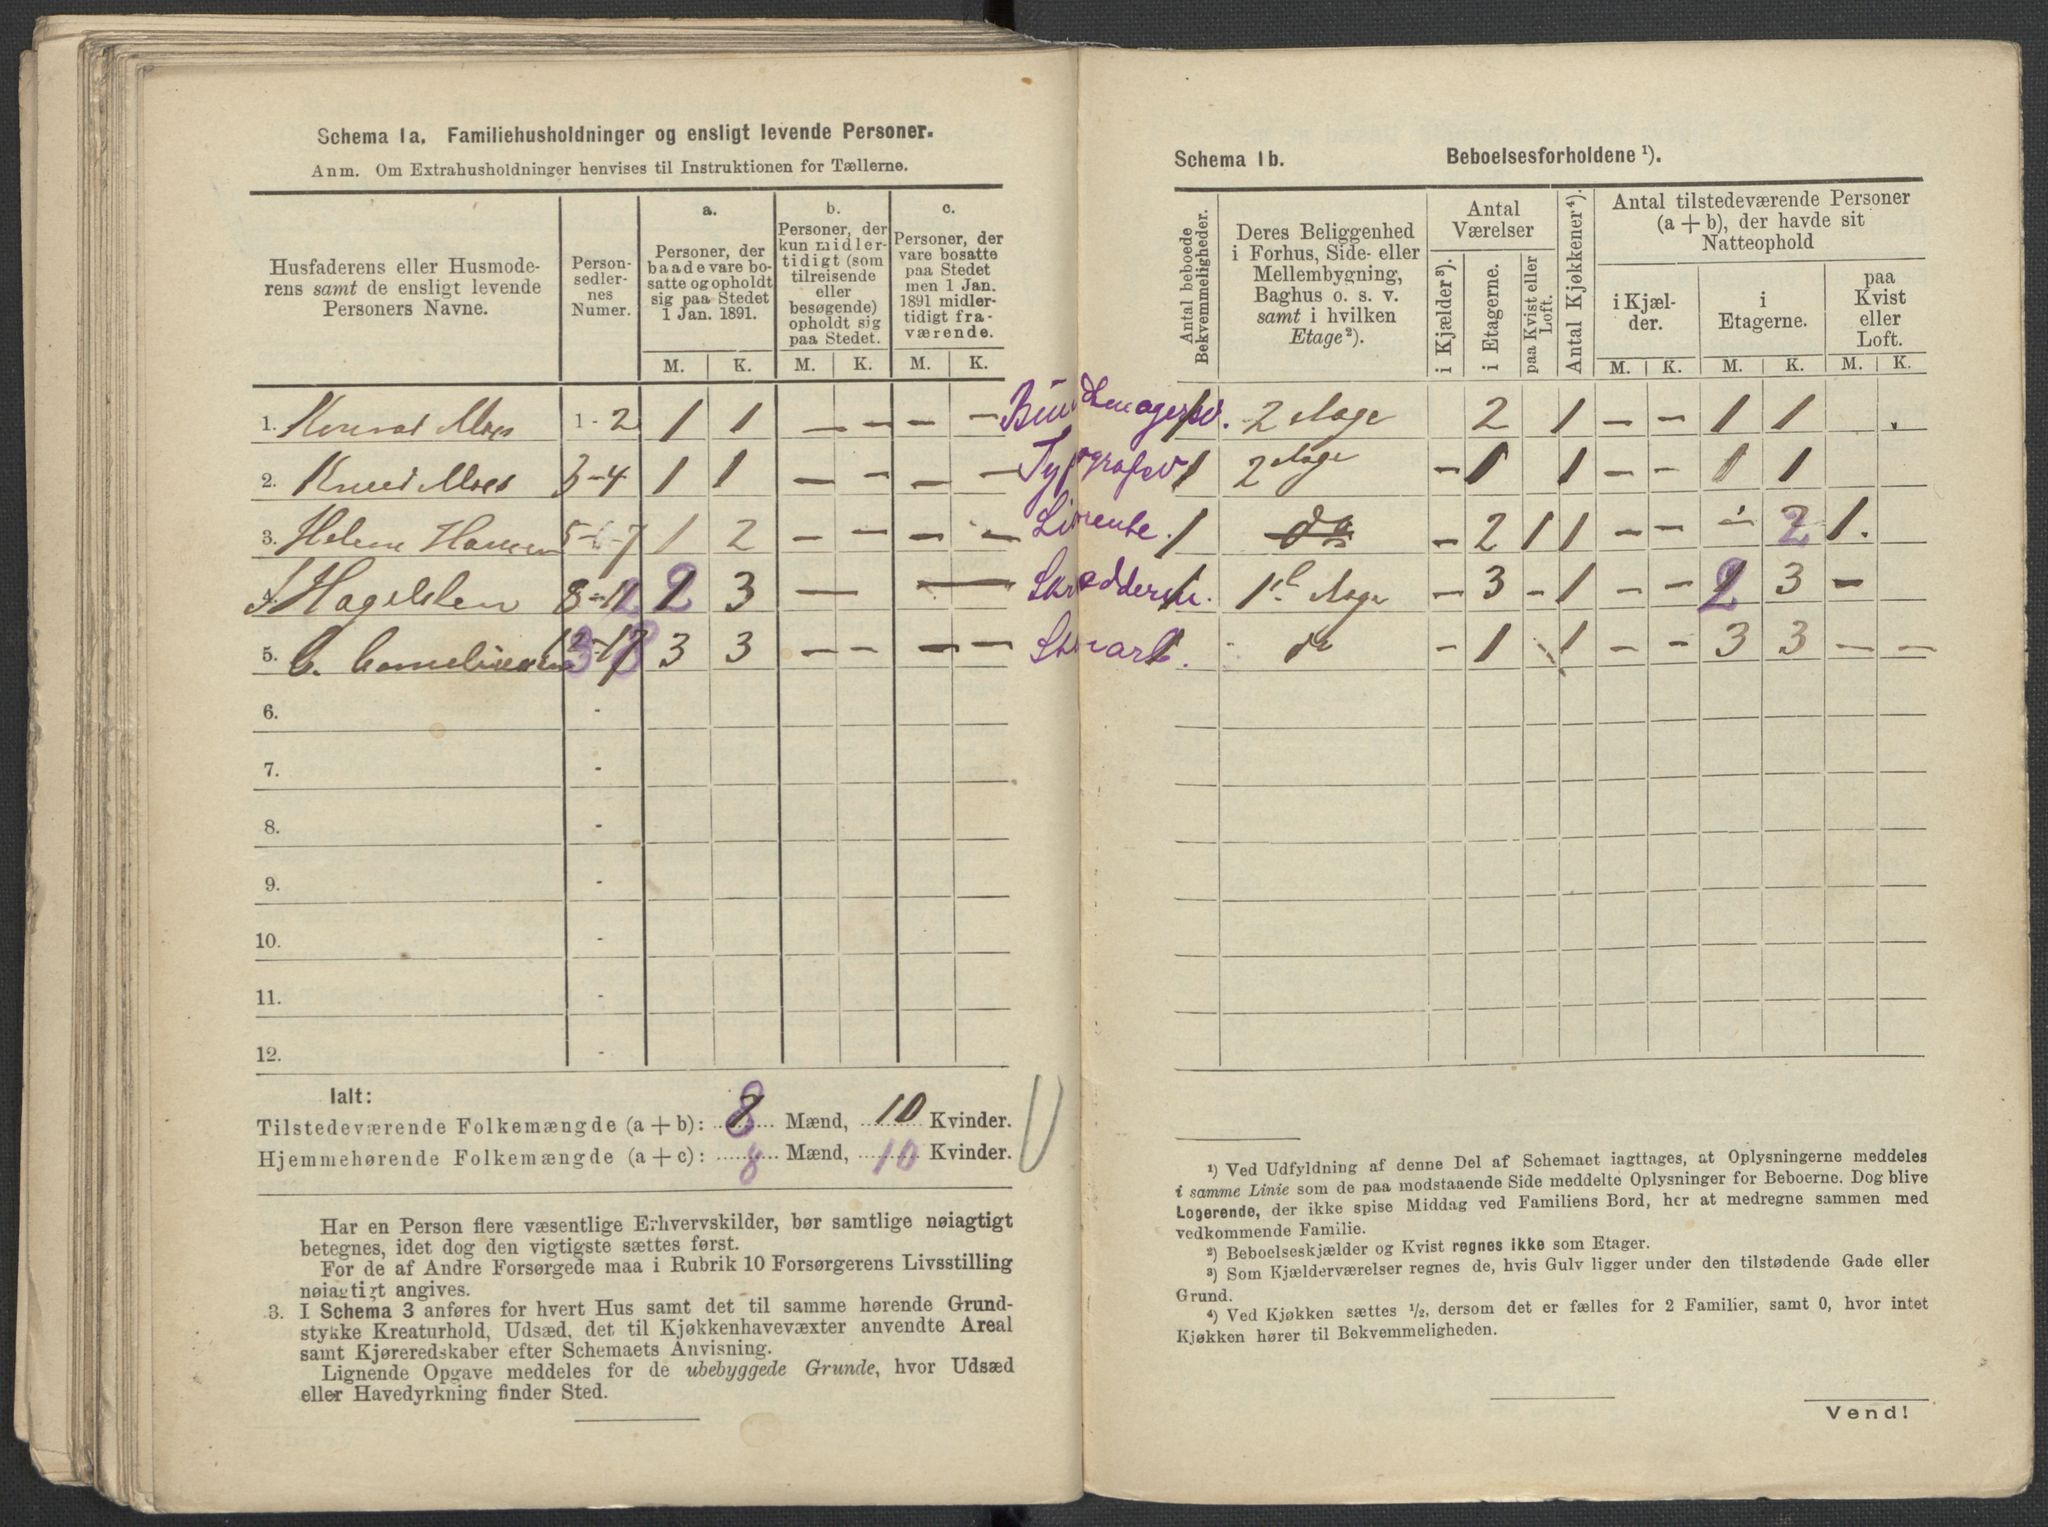 Schema 1a. Familiehusholdninger og ensligt levende Personer.
Anm. Om Extrahusholdninger henvises til Instruktionen for Tællerne.
Husfaderens eller Husmode-
rens samt de ensligt levende
Personers Navne.
Person-
sedler-
nes
Numer.
a.
Personer, der
baade vare bo-
satte og opholdt
sig paa Stedet
1 Jan. 1891.
b.
Personer, der
kun midler-
tidigt (som
tilreisende
eller
besøgende)
opholdt sig
paa Stedet.
c.
Personer, der
vare bosatte
paa Stedet
men 1 Jan.
1891 midler-
tidigt fra-
værende.
M. K. M. K. M. K.
1. Konrad Moes 1-2 1 1 — — — —
2. Knud Moes 3-4 1 1 — — — — Typografsv
3. Helene Hansen 5-7 1 2 — — — — Livrente.
4. Hagelsten 8-12 2 3 — —
5. C. Corneliussen 3 3 — — — —
6. -
7. -
8. -
9. -
10. -
11. -
12. -
Ialt:
Tilstedeværende Folkemængde (a + b): 8 Mænd, 10 Kvinder.
Hjemmehørende Folkemængde (a + c): 8 Mænd, 10 Kvinder.
Har en Person flere væsentlige Erhvervskilder, bør samtlige nøiagtigt
betegnes, idet dog den vigtigste sættes først.
For de af Andre Forsørgede maa i Rubrik 10 Forsørgerens Livsstilling
nøiagtigt angives.
3. I Schema 3 anføres for hvert Hus samt det til samme hørende Grund-
stykke Kreaturhold, Udsæd, det til Kjøkkenhavevæxter anvendte Areal
samt Kjøreredskaber efter Schemaets Anvisning.
Lignende Opgave meddeles for de ubebyggede Grunde, hvor Udsæd
eller Havedyrkning finder Sted.
Schema 1b. Beboelsesforholdene ¹).
Antal beboede
Bekvemmeligheder.
Deres Beliggenhed
i Forhus, Side- eller
Mellembygning,
Baghus o. s. v.
samt i hvilken
Etage²).
Antal
Værelser
i Kjælder³).
i Etagerne.
paa Kvist eller
Loft.
Antal Kjøkkener⁴).
Antal tilstedeværende Personer
(a + b), der havde sit
Natteophold
i Kjæl-
der.
i
Etagerne.
paa
Kvist
eller
Loft.
M. K. M. K. M. K.
1 2 Etage 2 1 — — 1 1
1 2 Etage — 1 1 — — 1 1
1 do — 2 1 1 — — 2 1.
1 Etage — 3 - 1 — — 2 3 —
1 do — 1 1 — — 3 3 — —
¹) Ved Udfyldning af denne Del af Schemaet iagttages, at Oplysningerne meddeles
i samme Linie som de paa modstaaende Side meddelte Oplysninger for Beboerne. Dog blive
Logerende, der ikke spise Middag ved Familiens Bord, her at medregne sammen med
vedkommende Familie.
²) Beboelseskjælder og Kvist regnes ikke som Etager.
³) Som Kjælderværelser regnes de, hvis Gulv ligger under den tilstødende Gade eller
Grund.
⁴) Ved Kjøkken sættes ½, dersom det er fælles for 2 Familier, samt 0, hvor intet
Kjøkken hører til Bekvemmeligheden.
Vend!